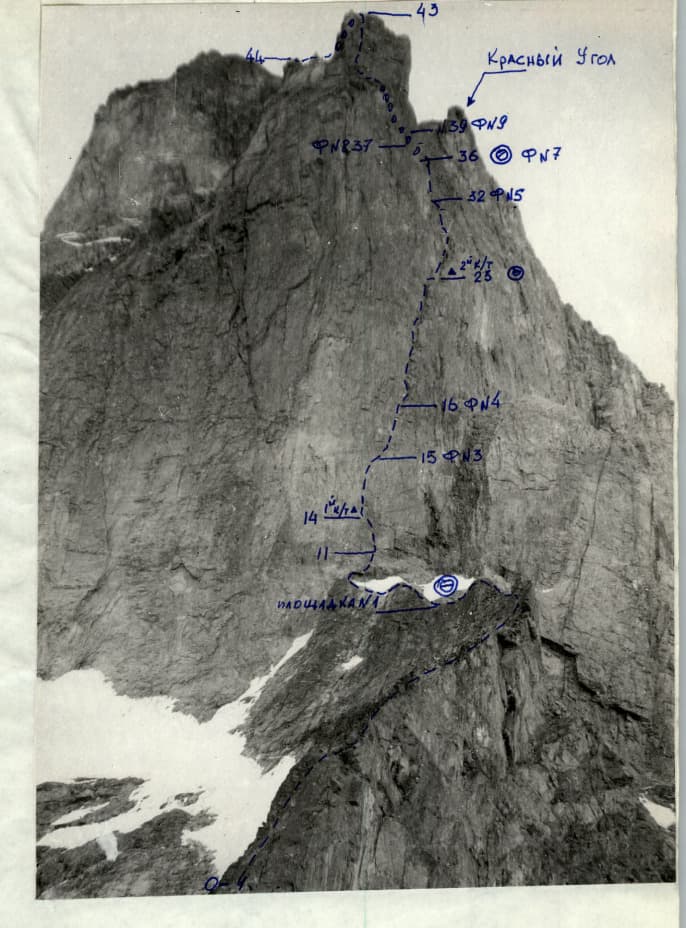 43
44
Красный Угол
39 ФN9
ФN8 37
36 ФN7
32 ФN5
2й к/т
23
16 ФN4
15 ФN3
1й к/т
14
11
площадка N1